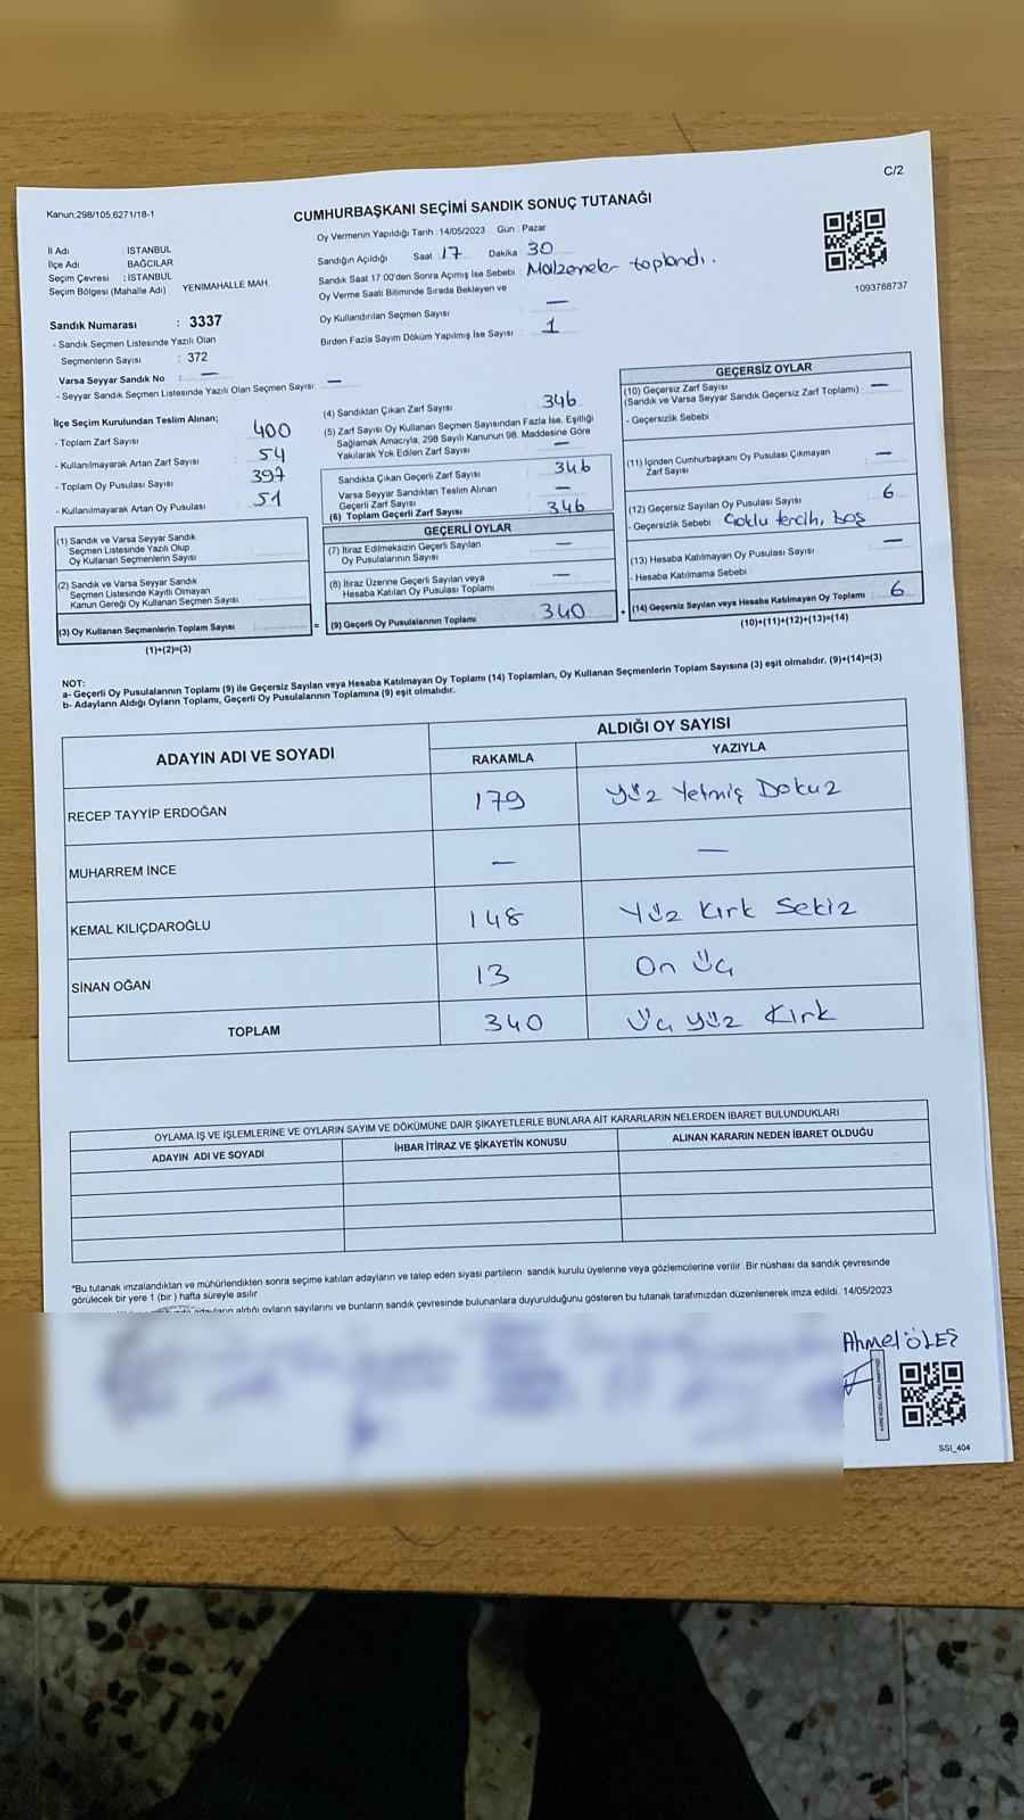 C/2
Kanun:298/105,6271/18-1
CUMHURBAŞKANI SEÇİMİ SANDIK SONUÇ TUTANAĞI
Oy Vermenin Yapıldığı Tarih : 14/05/2023 Gün : Pazar
İl Adı : İSTANBUL
İlçe Adı BAĞCILAR
Seçim Çevresi : İSTANBUL
Seçim Bölgesi (Mahalle Adı) YENİMAHALLE MAH.
Sandığın Açıldığı Saat 17 Dakika 30
Sandık Saat 17:00'den Sonra Açımış İse Sebebi Malzemeler toplandı.
Oy Verme Saati Bitiminde Sırada Bekleyen ve
Oy Kullandırılan Seçmen Sayısı —
Birden Fazla Sayım Döküm Yapılmış İse Sayısı 1
1093768737
Sandık Numarası : 3337
- Sandık Seçmen Listesinde Yazılı Olan
Seçmenlerin Sayısı : 372
Varsa Seyyar Sandık No : —
- Seyyar Sandık Seçmen Listesinde Yazılı Olan Seçmen Sayısı : —
İlçe Seçim Kurulundan Teslim Alınan;
- Toplam Zarf Sayısı 400
- Kullanılmayarak Artan Zarf Sayısı 54
- Toplam Oy Pusulası Sayısı 397
- Kullanılmayarak Artan Oy Pusulası 51
(1) Sandık ve Varsa Seyyar Sandık
Seçmen Listesinde Yazılı Olup
Oy Kullanan Seçmenlerin Sayısı
(2) Sandık ve Varsa Seyyar Sandık
Seçmen Listesinde Kayıtlı Olmayan
Kanun Gereği Oy Kullanan Seçmen Sayısı
(3) Oy Kullanan Seçmenlerin Toplam Sayısı =
(1)+(2)=(3)
(4) Sandıktan Çıkan Zarf Sayısı 346
(5) Zarf Sayısı Oy Kullanan Seçmen Sayısından Fazla İse, Eşitliği
Sağlamak Amacıyla, 298 Sayılı Kanunun 98. Maddesine Göre
Yakılarak Yok Edilen Zarf Sayısı —
Sandıkta Çıkan Geçerli Zarf Sayısı 346
Varsa Seyyar Sandıktan Teslim Alınan
Geçerli Zarf Sayısı —
(6) Toplam Geçerli Zarf Sayısı 346
GEÇERLİ OYLAR
(7) İtiraz Edilmeksizin Geçerli Sayılan
Oy Pusulalarının Sayısı —
(8) İtiraz Üzerine Geçerli Sayılan veya
Hesaba Katılan Oy Pusulası Toplamı —
(9) Geçerli Oy Pusulalarının Toplamı 340 +
GEÇERSİZ OYLAR
(10) Geçersiz Zarf Sayısı
(Sandık ve Varsa Seyyar Sandık Geçersiz Zarf Toplamı) : —
- Geçersizlik Sebebi
(11) İçinden Cumhurbaşkanı Oy Pusulası Çıkmayan
Zarf Sayısı —
(12) Geçersiz Sayılan Oy Pusulası Sayısı 6
- Geçersizlik Sebebi Çoklu tercih, boş
(13) Hesaba Katılmayan Oy Pusulası Sayısı —
- Hesaba Katılmama Sebebi
(14) Geçersiz Sayılan veya Hesaba Katılmayan Oy Toplamı 6
(10)+(11)+(12)+(13)=(14)
NOT:
a- Geçerli Oy Pusulalarının Toplamı (9) ile Geçersiz Sayılan veya Hesaba Katılmayan Oy Toplamı (14) Toplamları, Oy Kullanan Seçmenlerin Toplam Sayısına (3) eşit olmalıdır. (9)+(14)=(3)
b- Adayların Aldığı Oyların Toplamı, Geçerli Oy Pusulalarının Toplamına (9) eşit olmalıdır.
ADAYIN ADI VE SOYADI
ALDIĞI OY SAYISI
RAKAMLA YAZIYLA
RECEP TAYYİP ERDOĞAN 179 Yüz Yetmiş Dokuz
MUHARREM İNCE — —
KEMAL KILIÇDAROĞLU 148 Yüz Kırk Sekiz
SİNAN OĞAN 13 On Üç
TOPLAM 340 Üç yüz Kırk
OYLAMA İŞ VE İŞLEMLERİNE VE OYLARIN SAYIM VE DÖKÜMÜNE DAİR ŞİKAYETLERLE BUNLARA AİT KARARLARIN NELERDEN İBARET BULUNDUKLARI
ADAYIN ADI VE SOYADI İHBAR İTİRAZ VE ŞİKAYETİN KONUSU ALINAN KARARIN NEDEN İBARET OLDUĞU
*Bu tutanak imzalandıktan ve mühürlendikten sonra seçime katılan adayların ve talep eden siyasi partilerin sandık kurulu üyelerine veya gözlemcilerine verilir. Bir nüshası da sandık çevresinde
görülecek bir yere 1 (bir ) hafta süreyle asılır
aldığı oyların sayılarını ve bunların sandık çevresinde bulunanlara duyurulduğunu gösteren bu tutanak tarafımızdan düzenlenerek imza edildi. 14/05/2023
SSI_404